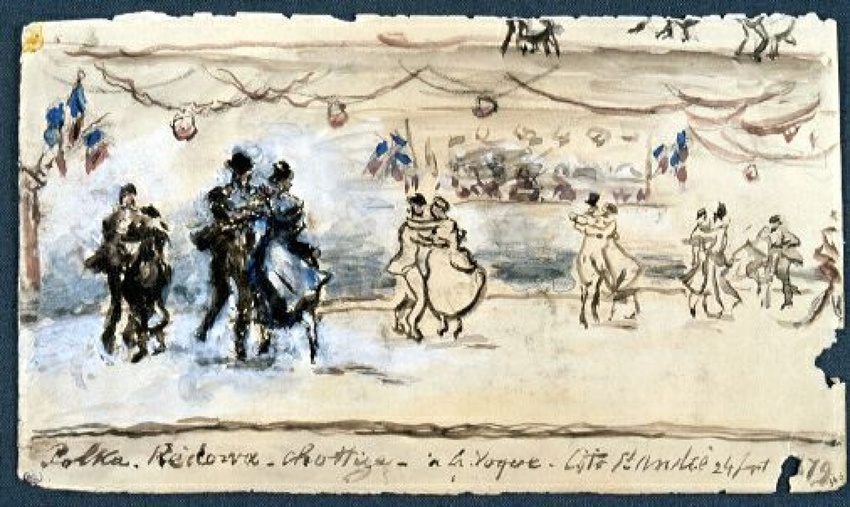 Polka. Rédowa - chottize - à la Vogue. Côte St André 24 79